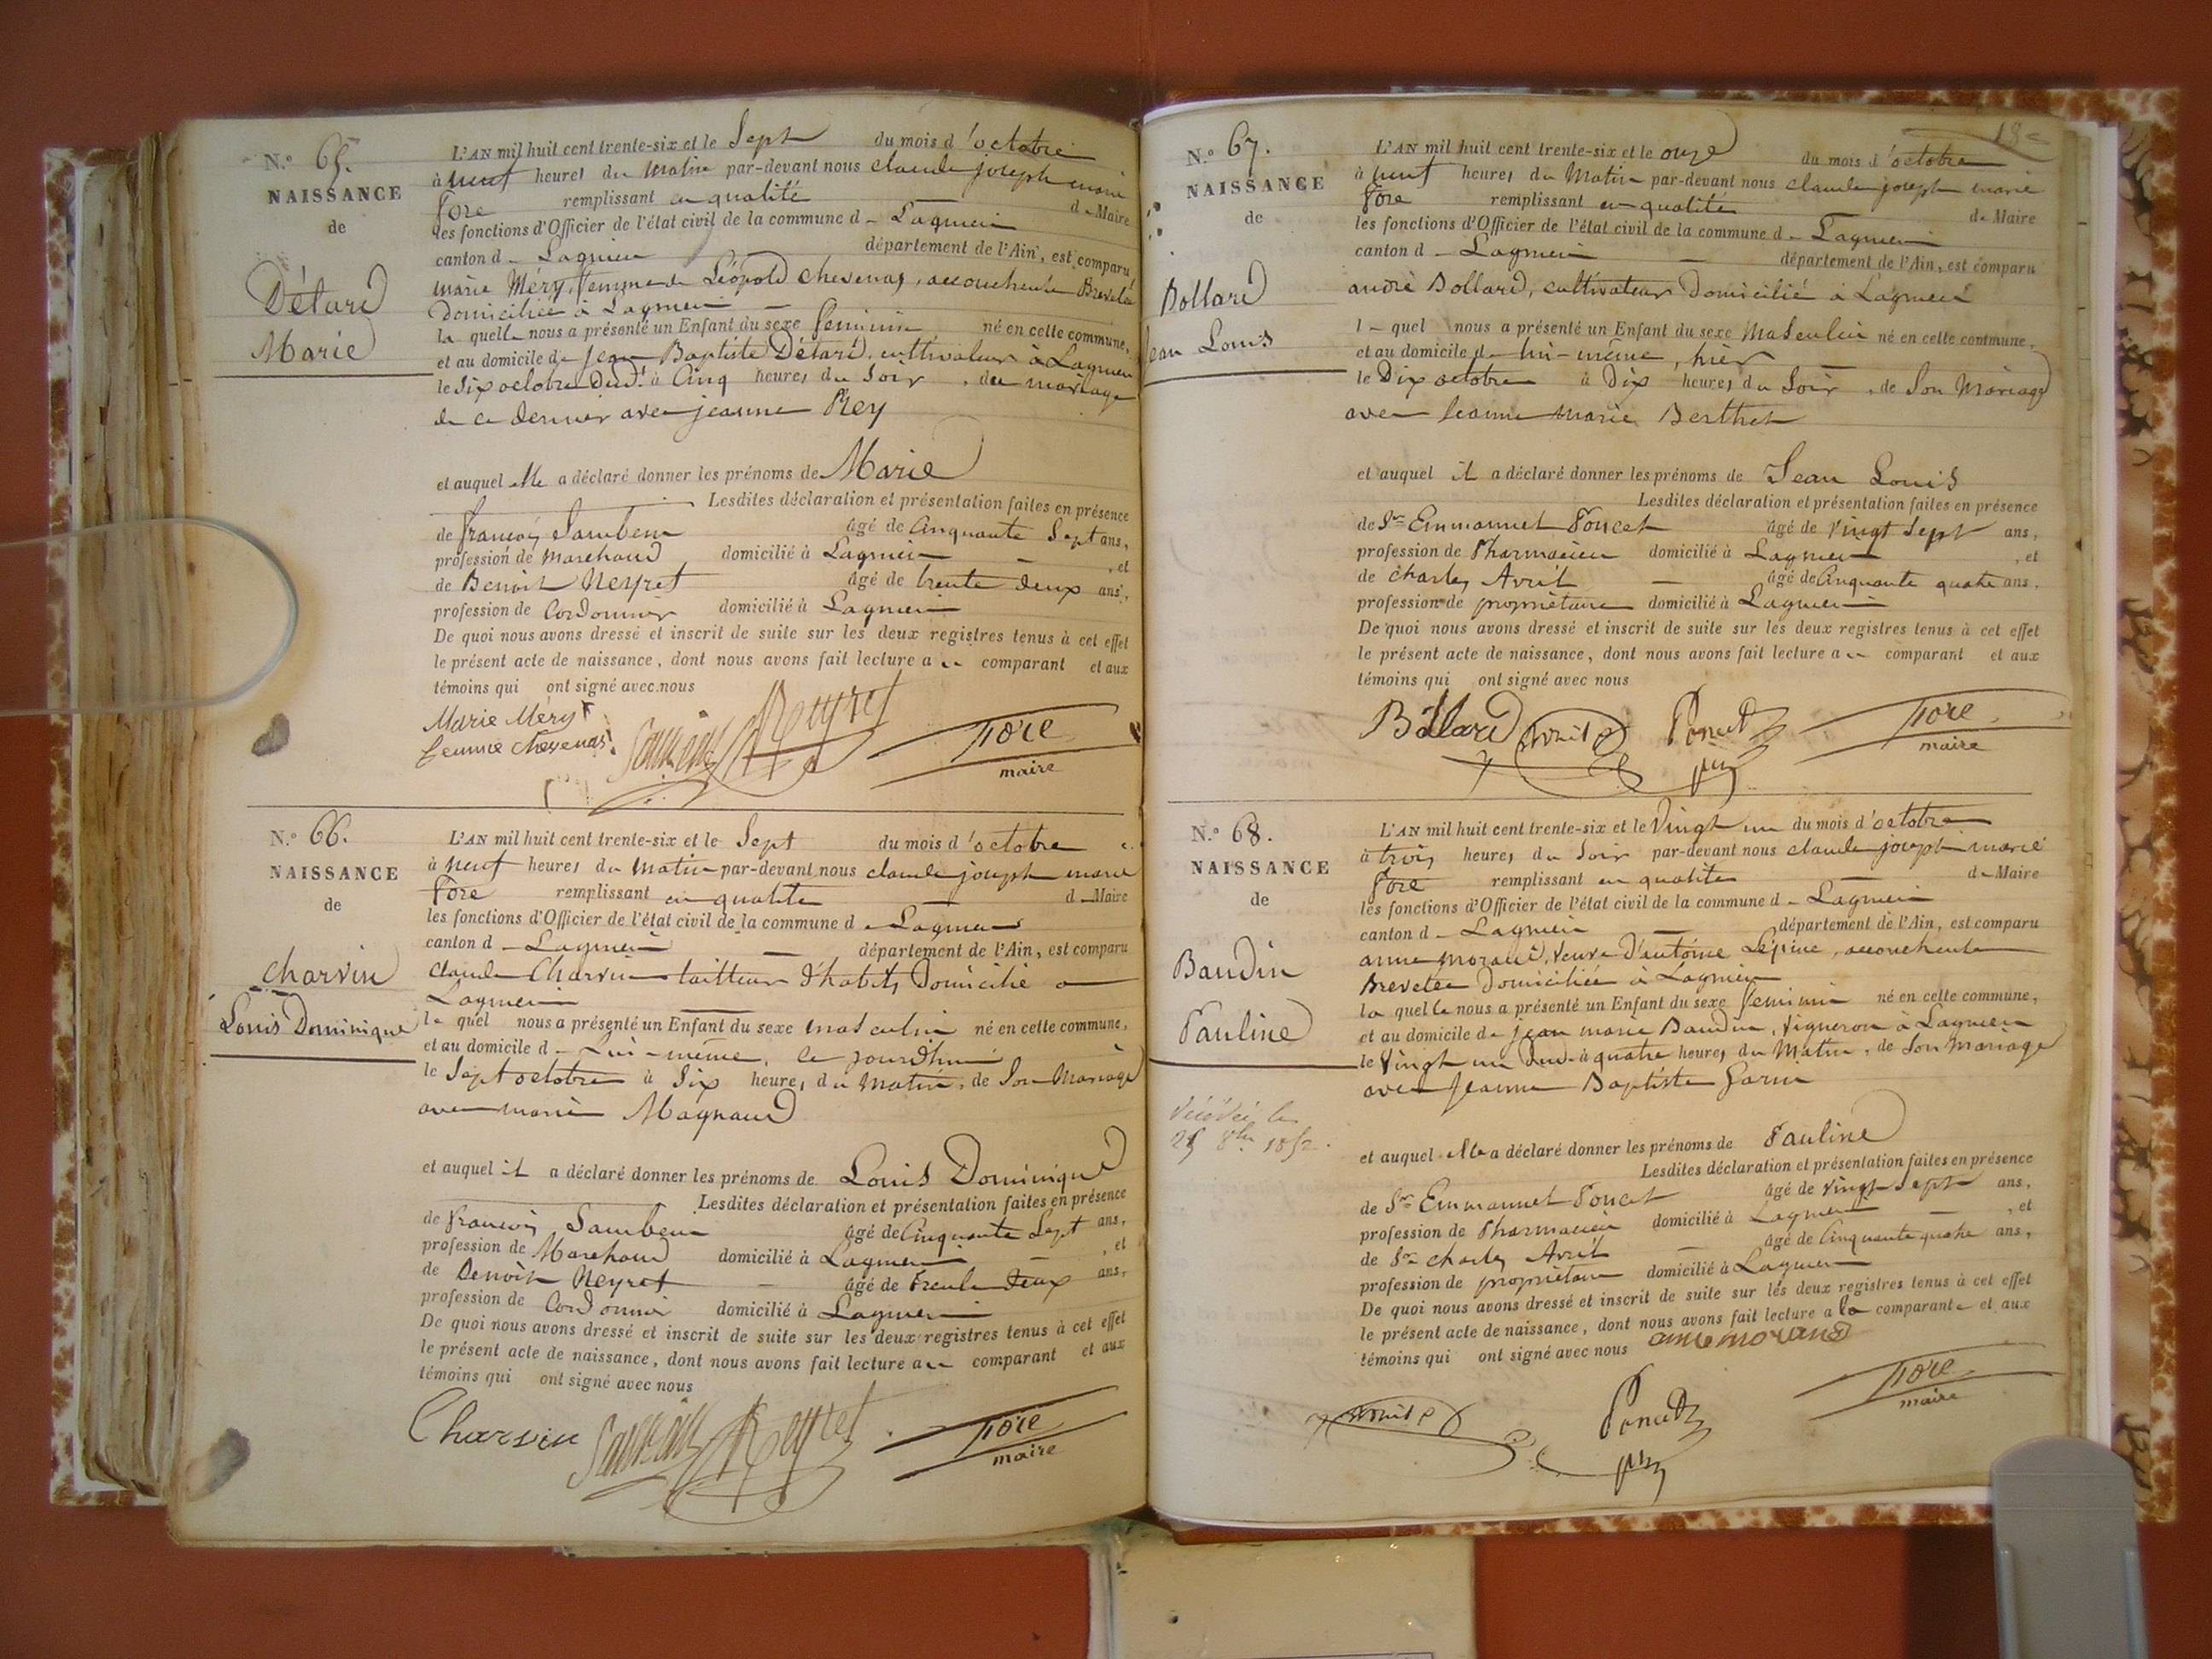 N.° 65.
NAISSANCE
de
Détard
Marie
L'AN mil huit cent trente-six et le Sept du mois d'octobre
à neuf heures du Matin par-devant nous claude joseph marie
fore remplissant en qualité de Maire
les fonctions d'Officier de l'état civil de la commune d - Lagnieu
canton d - Lagnieu département de l'Ain, est comparu
marie Méry, femme de Léopold chevenas, accoucheuse Brevetée
Domiciliée à Lagnieu
la quelle nous a présenté un Enfant du sexe feminin né en cette commune,
et au domicile de jean Baptiste Détard, cultivateur à Lagnieu
le Six octobre Dud.t à Cinq heures du Soir, du mariage
de ce dernier avec jeanne Rey
et auquel elle a déclaré donner les prénoms de Marie
Lesdites déclaration et présentation faites en présence
de françois Sambein âgé de Cinquante Sept ans,
profession de Marchand domicilié à Lagnieu , et
de Benoit Neyret âgé de trente deux ans,
profession de Cordonnier domicilié à Lagnieu
De quoi nous avons dressé et inscrit de suite sur les deux registres tenus à cet effet
le présent acte de naissance, dont nous avons fait lecture au comparant et aux
témoins qui ont signé avec nous
Marie Méry
femme chevenas
Neyret
fore
maire
N.° 66.
NAISSANCE
de
Charvin
Louis Dominique
L'AN mil huit cent trente-six et le Sept du mois d'octobre
à neuf heures du matin par-devant nous claude joseph marie
fore remplissant en qualité de Maire
les fonctions d'Officier de l'état civil de la commune d - Lagnieu
canton d - Lagnieu département de l'Ain, est comparu
claude Charvin tailleur d'habits Domicilié a
Lagnieu
le quel nous a présenté un Enfant du sexe masculin né en cette commune,
et au domicile d - Lui-même, ce jourdhui
le Sept octobre à Six heures du matin, de Son Mariage
avec marie Magnaud
et auquel il a déclaré donner les prénoms de Louis Dominique
Lesdites déclaration et présentation faites en présence
de françois Sambein âgé de Cinquante Sept ans,
profession de Marchand domicilié à Lagnieu , et
de Benoit Neyret âgé de trente deux ans,
profession de Cordonnier domicilié à Lagnieu
De quoi nous avons dressé et inscrit de suite sur les deux registres tenus à cet effet
le présent acte de naissance, dont nous avons fait lecture au comparant et aux
témoins qui ont signé avec nous
Charvin Neyret
fore
maire
N.° 67.
NAISSANCE
de
Bollard
Jean Louis
L'AN mil huit cent trente-six et le onze du mois d'octobre
à neuf heures du Matin par-devant nous claude joseph marie
fore remplissant en qualité de Maire
les fonctions d'Officier de l'état civil de la commune d - Lagnieu
canton d - Lagnieu département de l'Ain, est comparu
andré Bollard, cultivateur Domicilié à Lagnieu
le quel nous a présenté un Enfant du sexe Masculin né en cette commune,
et au domicile de lui-même, hier
le Dix octobre à Dix heures du Soir, de Son Mariage
avec Jeanne Marie Berthet
et auquel il a déclaré donner les prénoms de Jean Louis
Lesdites déclaration et présentation faites en présence
de Sr Emmanuel Poncet âgé de vingt Sept ans,
profession de Pharmacien domicilié à Lagnieu , et
de charles Avril âgé de Cinquante quatre ans.
profession de propriétaire domicilié à Lagnieu
De quoi nous avons dressé et inscrit de suite sur les deux registres tenus à cet effet
le présent acte de naissance, dont nous avons fait lecture au comparant et aux
témoins qui ont signé avec nous
Bollard Avril Poncet
fore
maire
N.° 68.
NAISSANCE
de
Baudin
Pauline
Décédée le
25 8bre 1852.
L'AN mil huit cent trente-six et le Vingt un du mois d'octobre
à trois heures du Soir par-devant nous claude joseph marie
fore remplissant en qualité de Maire
les fonctions d'Officier de l'état civil de la commune d - Lagnieu
canton d - Lagnieu département de l'Ain, est comparu
anne morand, veuve D'antoine Lépine, accoucheuse
Brevetée Domiciliée à Lagnieu
la quelle nous a présenté un Enfant du sexe feminin né en cette commune,
et au domicile de jean marie Baudin, Vigneron à Lagnieu
le Vingt un Dud. à quatre heures du Matin, de Son Mariage
avec Jeanne Baptiste Garin
et auquel elle a déclaré donner les prénoms de Pauline
Lesdites déclaration et présentation faites en présence
de Sr Emmanuel Poncet âgé de vingt Sept ans,
profession de Pharmacien domicilié à Lagnieu , et
de Sr charles Avril âgé de Cinquante quatre ans,
profession de propriétaire domicilié à Lagnieu
De quoi nous avons dressé et inscrit de suite sur les deux registres tenus à cet effet
le présent acte de naissance, dont nous avons fait lecture a la comparante et aux
témoins qui ont signé avec nous anne morand
Avril Poncet
fore
maire